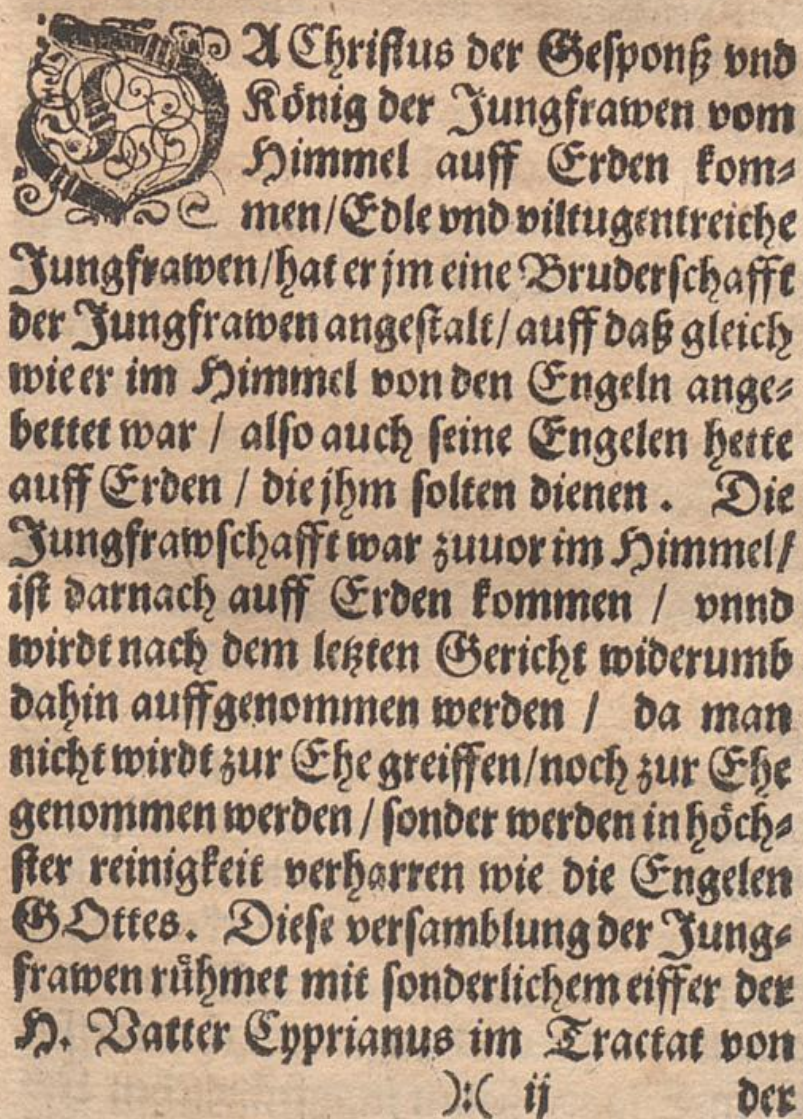 DA Christus der Gesponß vnd
König der Jungfrawen vom
Himmel auff Erden kom⸗
men/Edle vnd viltugentreiche
Jungfrawen/hat er jm eine Bruderschafft
der Jungfrawen angestalt/auff daß gleich
wie er im Himmel von den Engeln ange⸗
bettet war / also auch seine Engelen hette
auff Erden / die jhm solten dienen. Die
Jungfrawschafft war zuuor im Himmel/
ist darnach auff Erden kommen / vnnd
wirdt nach dem letzten Gericht widerumb
dahin auffgenommen werden / da man
nicht wirdt zur Ehe greiffen/noch zur Ehe
genommen werden / sonder werden in höch⸗
ster reinigkeit verharren wie die Engelen
GOttes. Diese versamblung der Jung⸗
frawen rühmet mit sonderlichem eiffer der
H. Vatter Cyprianus im Tractat von
):( ij der